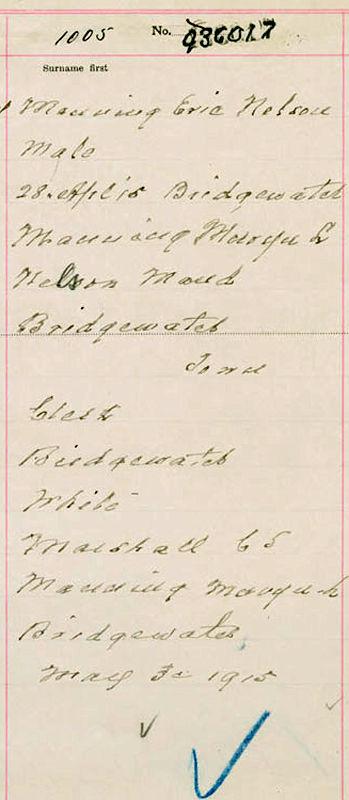 1005 No. 936017
Surname first
Manning Eric Nelson
Male
28 Apl 15 Bridgewater
Manning
Nelson Maud
Bridgewater
Town
Clerk
Bridgewater
White
Marshall C S
Manning
Bridgewater
May 3 1915